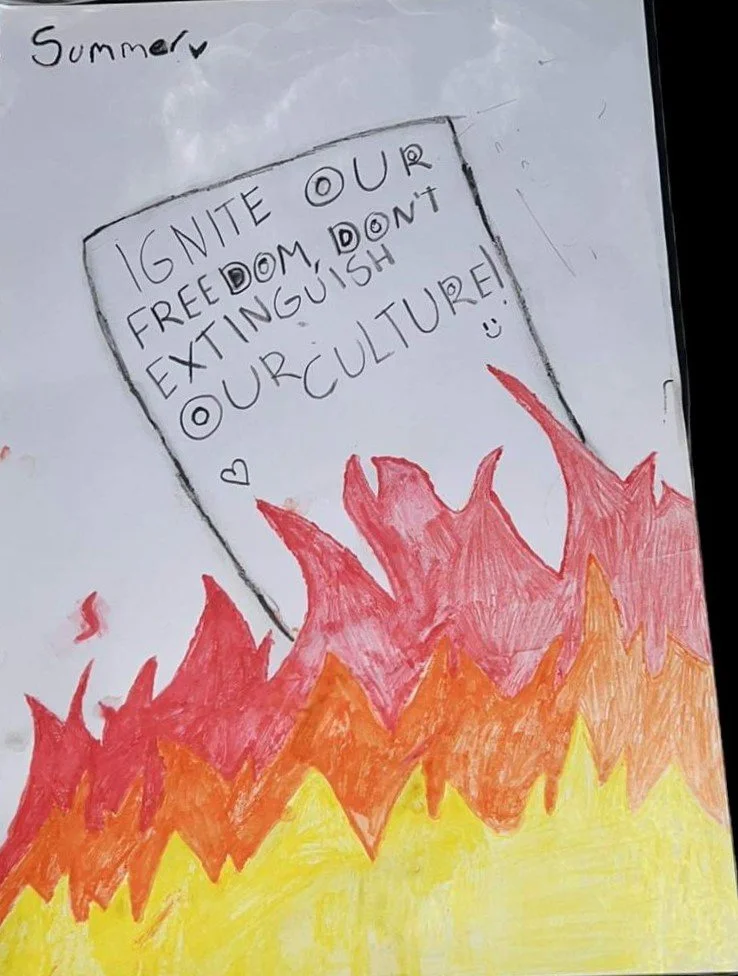 Summer
IGNITE OUR
FREEDOM, DON'T
EXTINGUISH
OUR CULTURE!